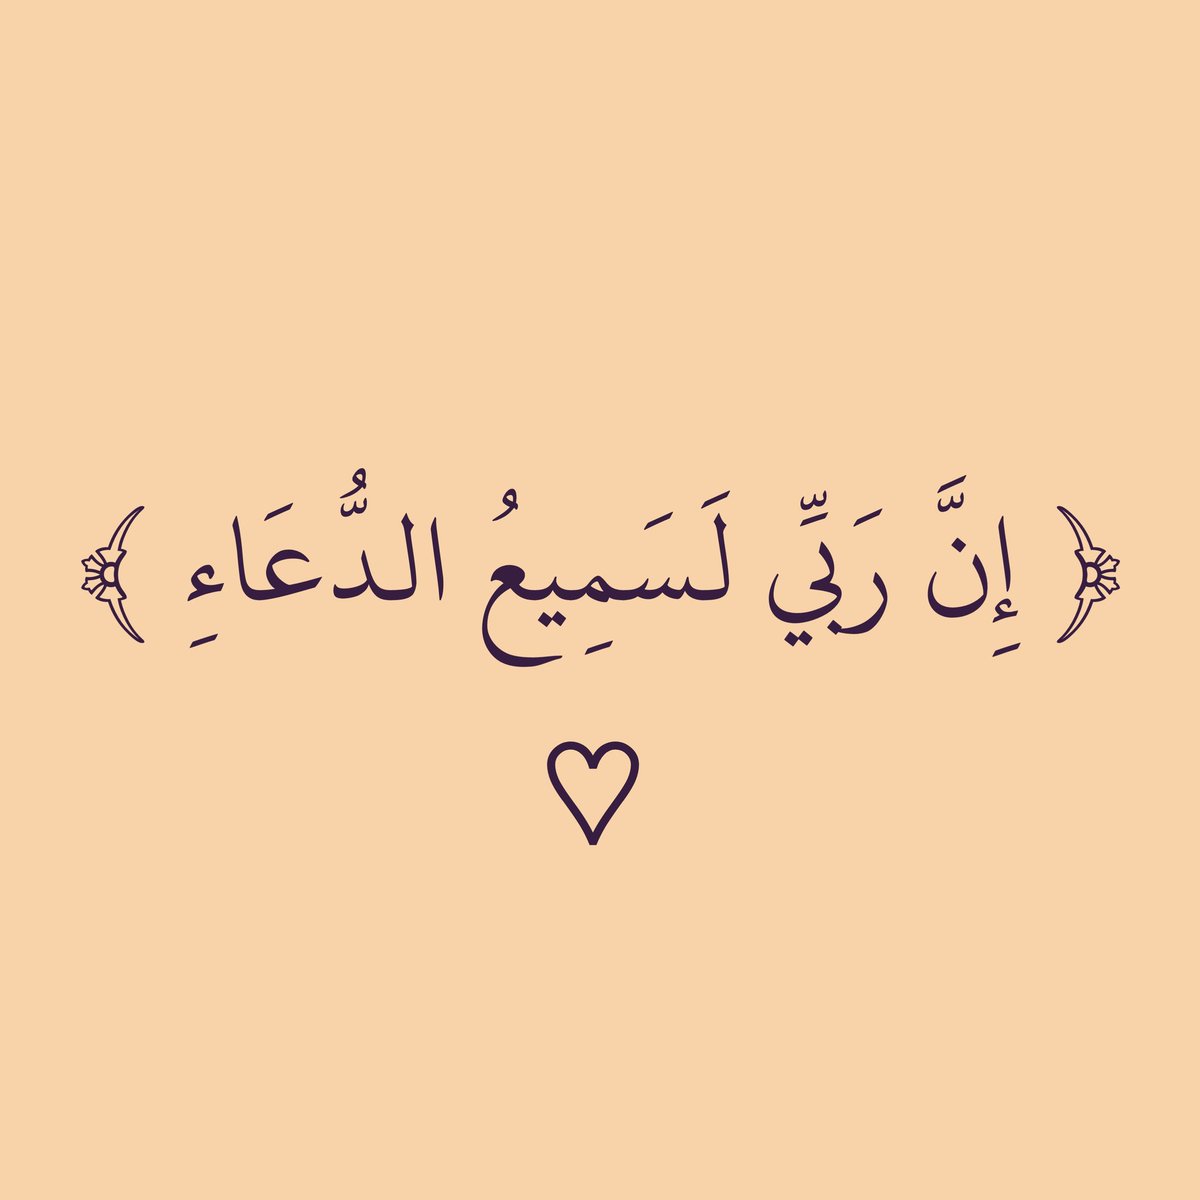 ﴿ إِنَّ رَبِّي لَسَمِيعُ الدُّعَاءِ ﴾
♡